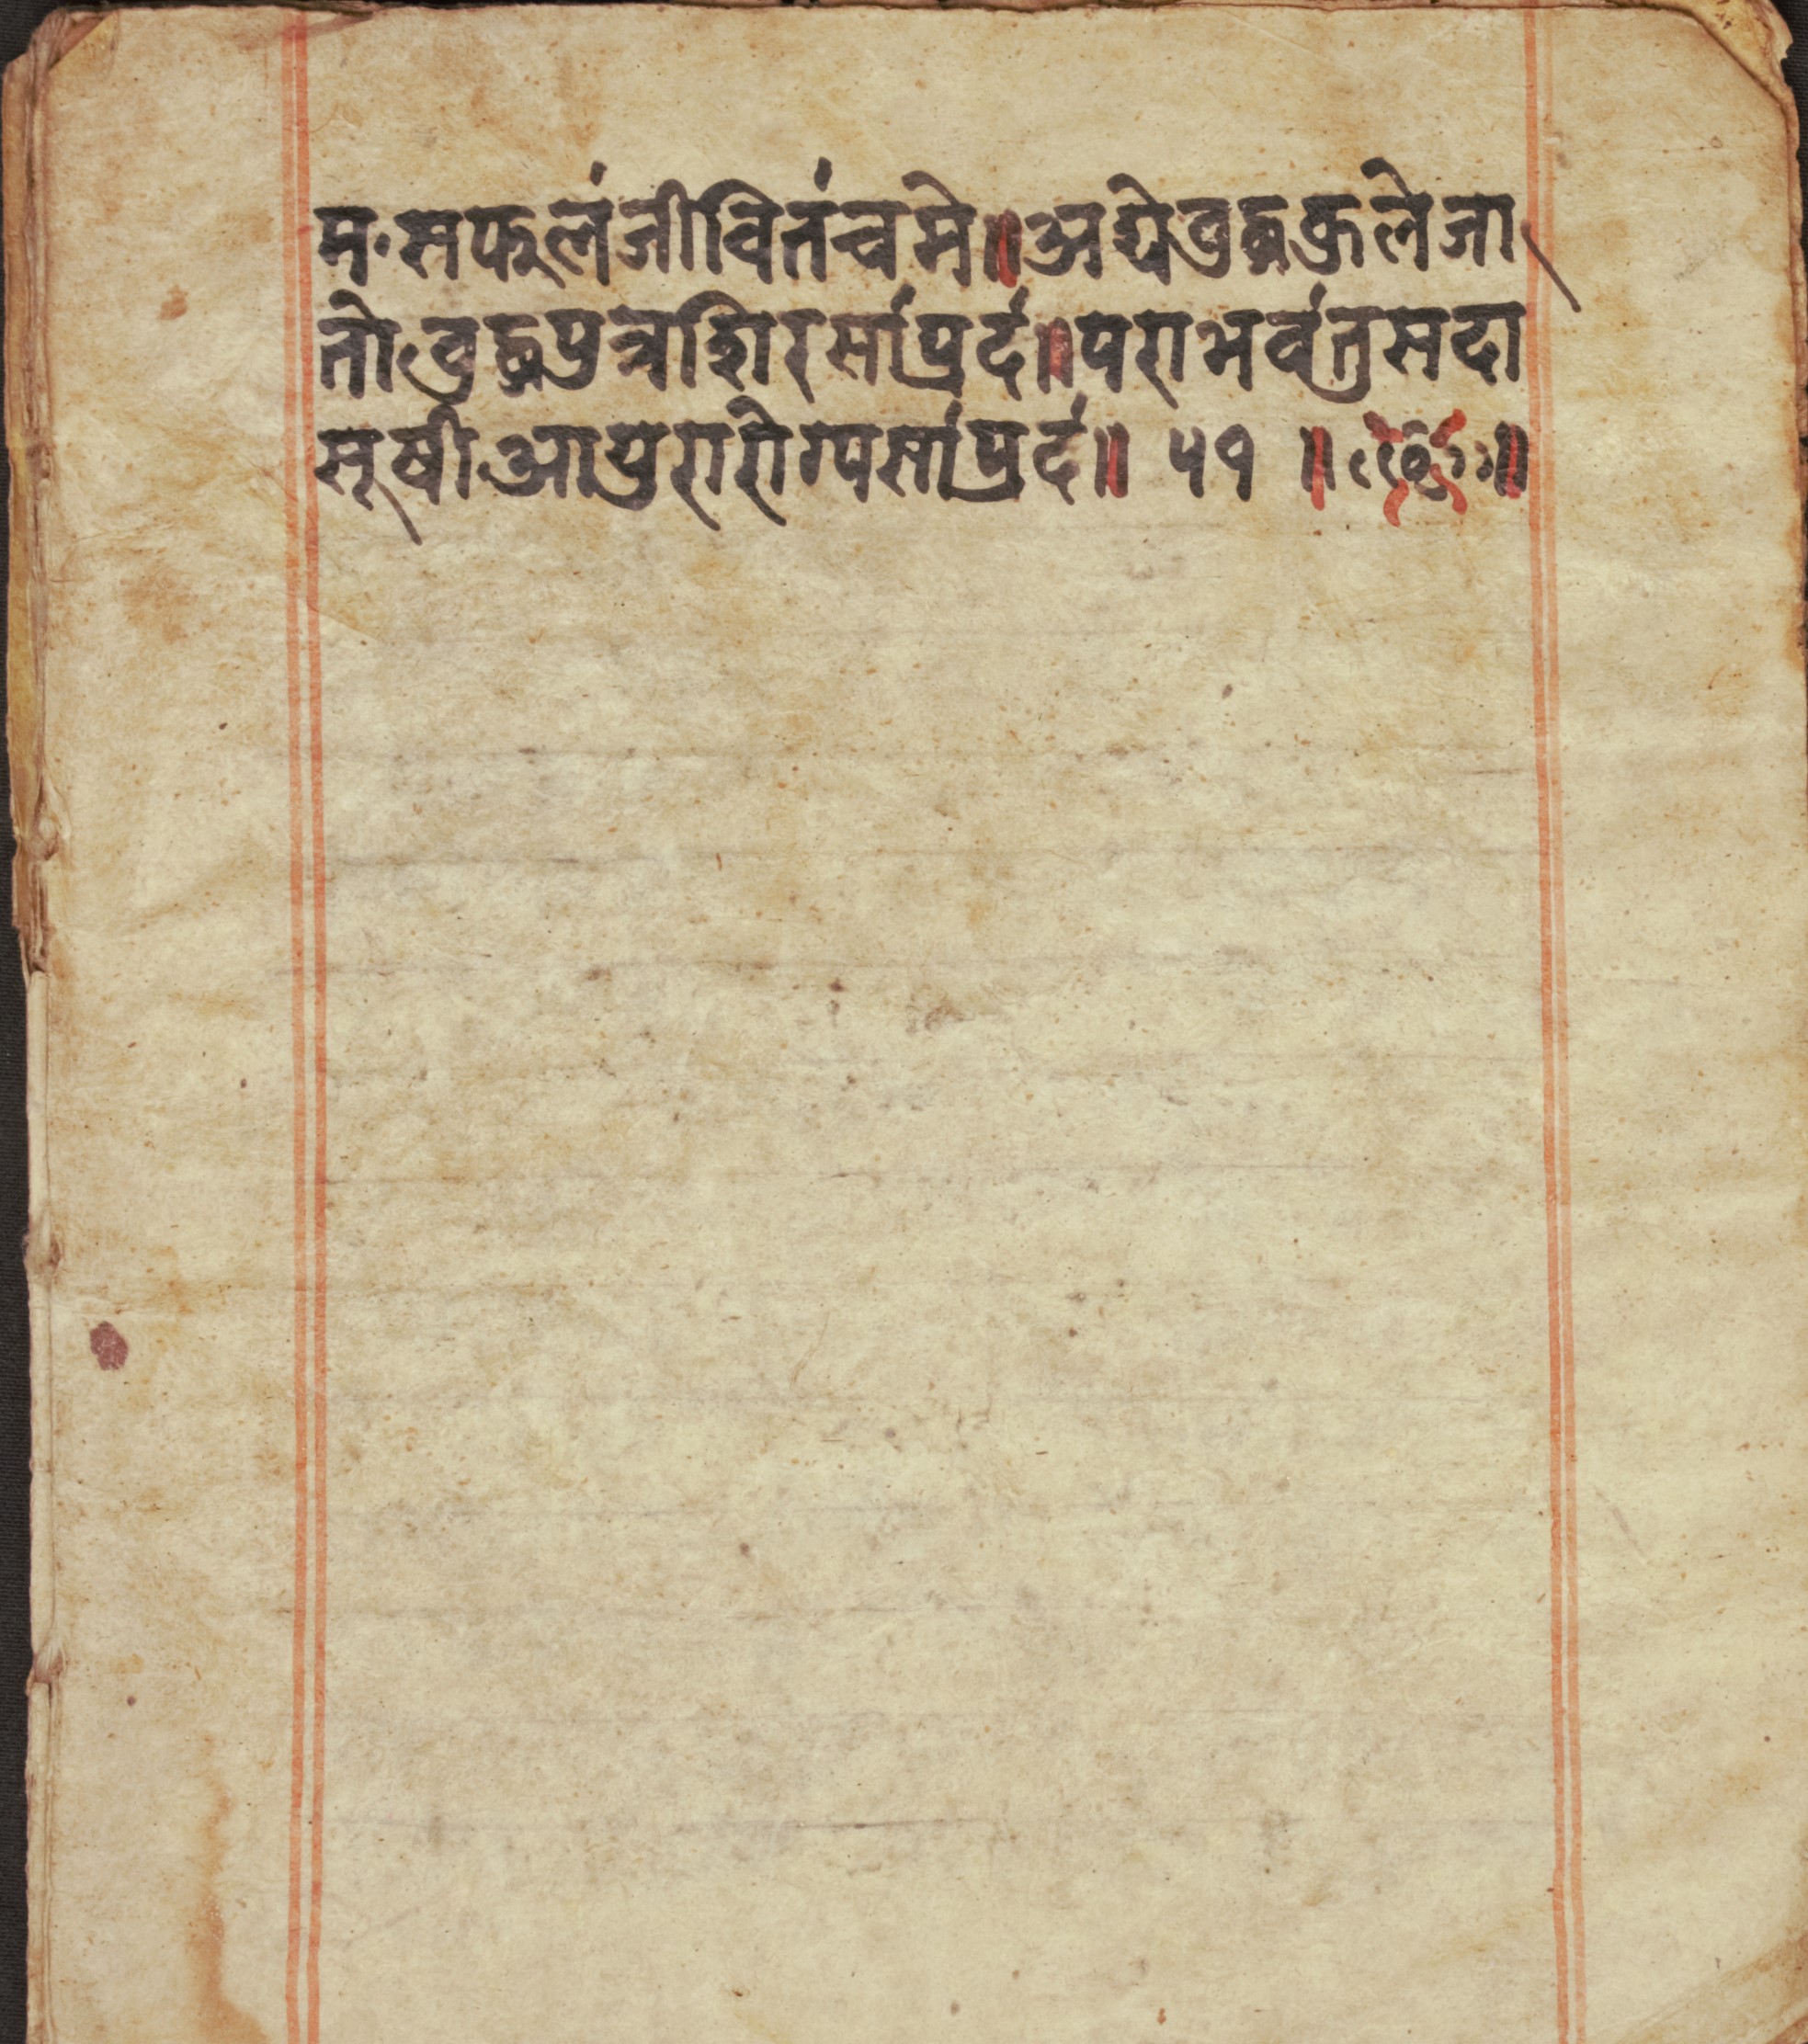 म॰सफुलंजीवितंचमे॥अद्येवुद्धकुलेजा
तोवुद्धपुत्रशिरसांप्रदं॥पराभवंतुसदा
सूषीआयुरारोग्यसांप्रदं॥ ५१ ॥ ॥